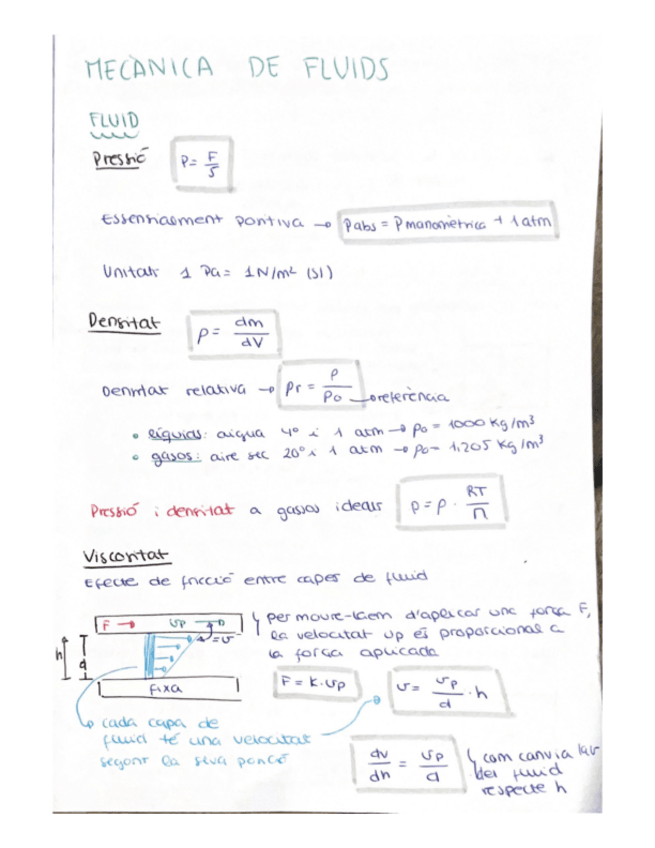 MECÀNICA DE FLUIDS
FLUID
Pressió P = F/S
Essencialment positiva → Pabs = P manomètrica + 1 atm
Unitat 1 Pa = 1N/m² (SI)
Densitat ρ = dm/dV
Densitat relativa → ρr = ρ/ρo → referència
• líquids: aigua 4º i 1 atm → ρo = 1000 Kg/m³
• gasos: aire sec 20º i 1 atm → ρo = 1,205 Kg/m³
Pressió i densitat a gasos ideals P = ρ · RT/M
Viscositat
Efecte de fricció entre capes de fluid
F → vp →
h d = v
fixa
per moure-la hem d'aplicar una força F,
la velocitat vp és proporcional a
la força aplicada
F = K·vp v = vp/d · h
cada capa de
fluid té una velocitat
segons la seva posició
dv/dh = vp/d
com canvia la v
del fluid
respecte h